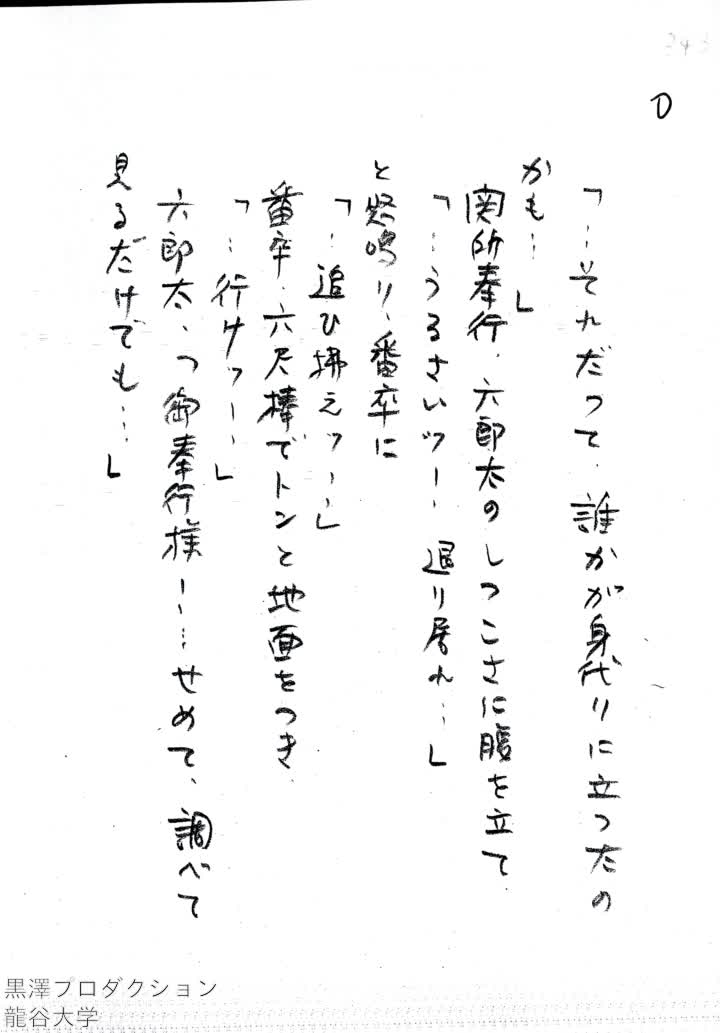 D
「…それだつて、誰かが身代りに立つたの
かも…」
関所奉行、六郎太のしつこさに腹を立て
「…うるさいッ！ 退り居れ…」
と怒鳴り、番卒に
「…追ひ拂えッ！…」
番卒、六尺棒でトンと地面をつき、
「…行けッ！…」
六郎太、「御奉行様！…せめて、調べて
見るだけでも…」
黒澤プロダクション
龍谷大学